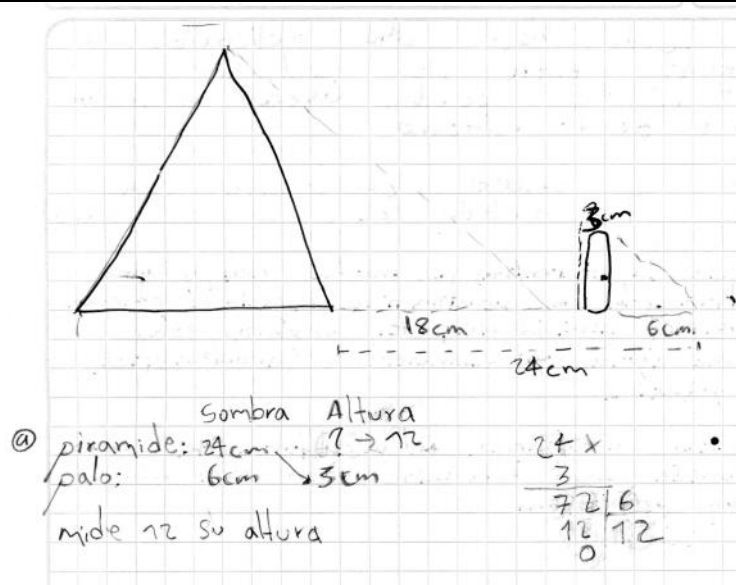 3cm
18cm
6cm
24cm
Sombra Altura
ⓐ piramide: 24cm ? → 12
palo: 6cm 3cm
mide 12 su altura
24 x
3
72 6
12 12
0